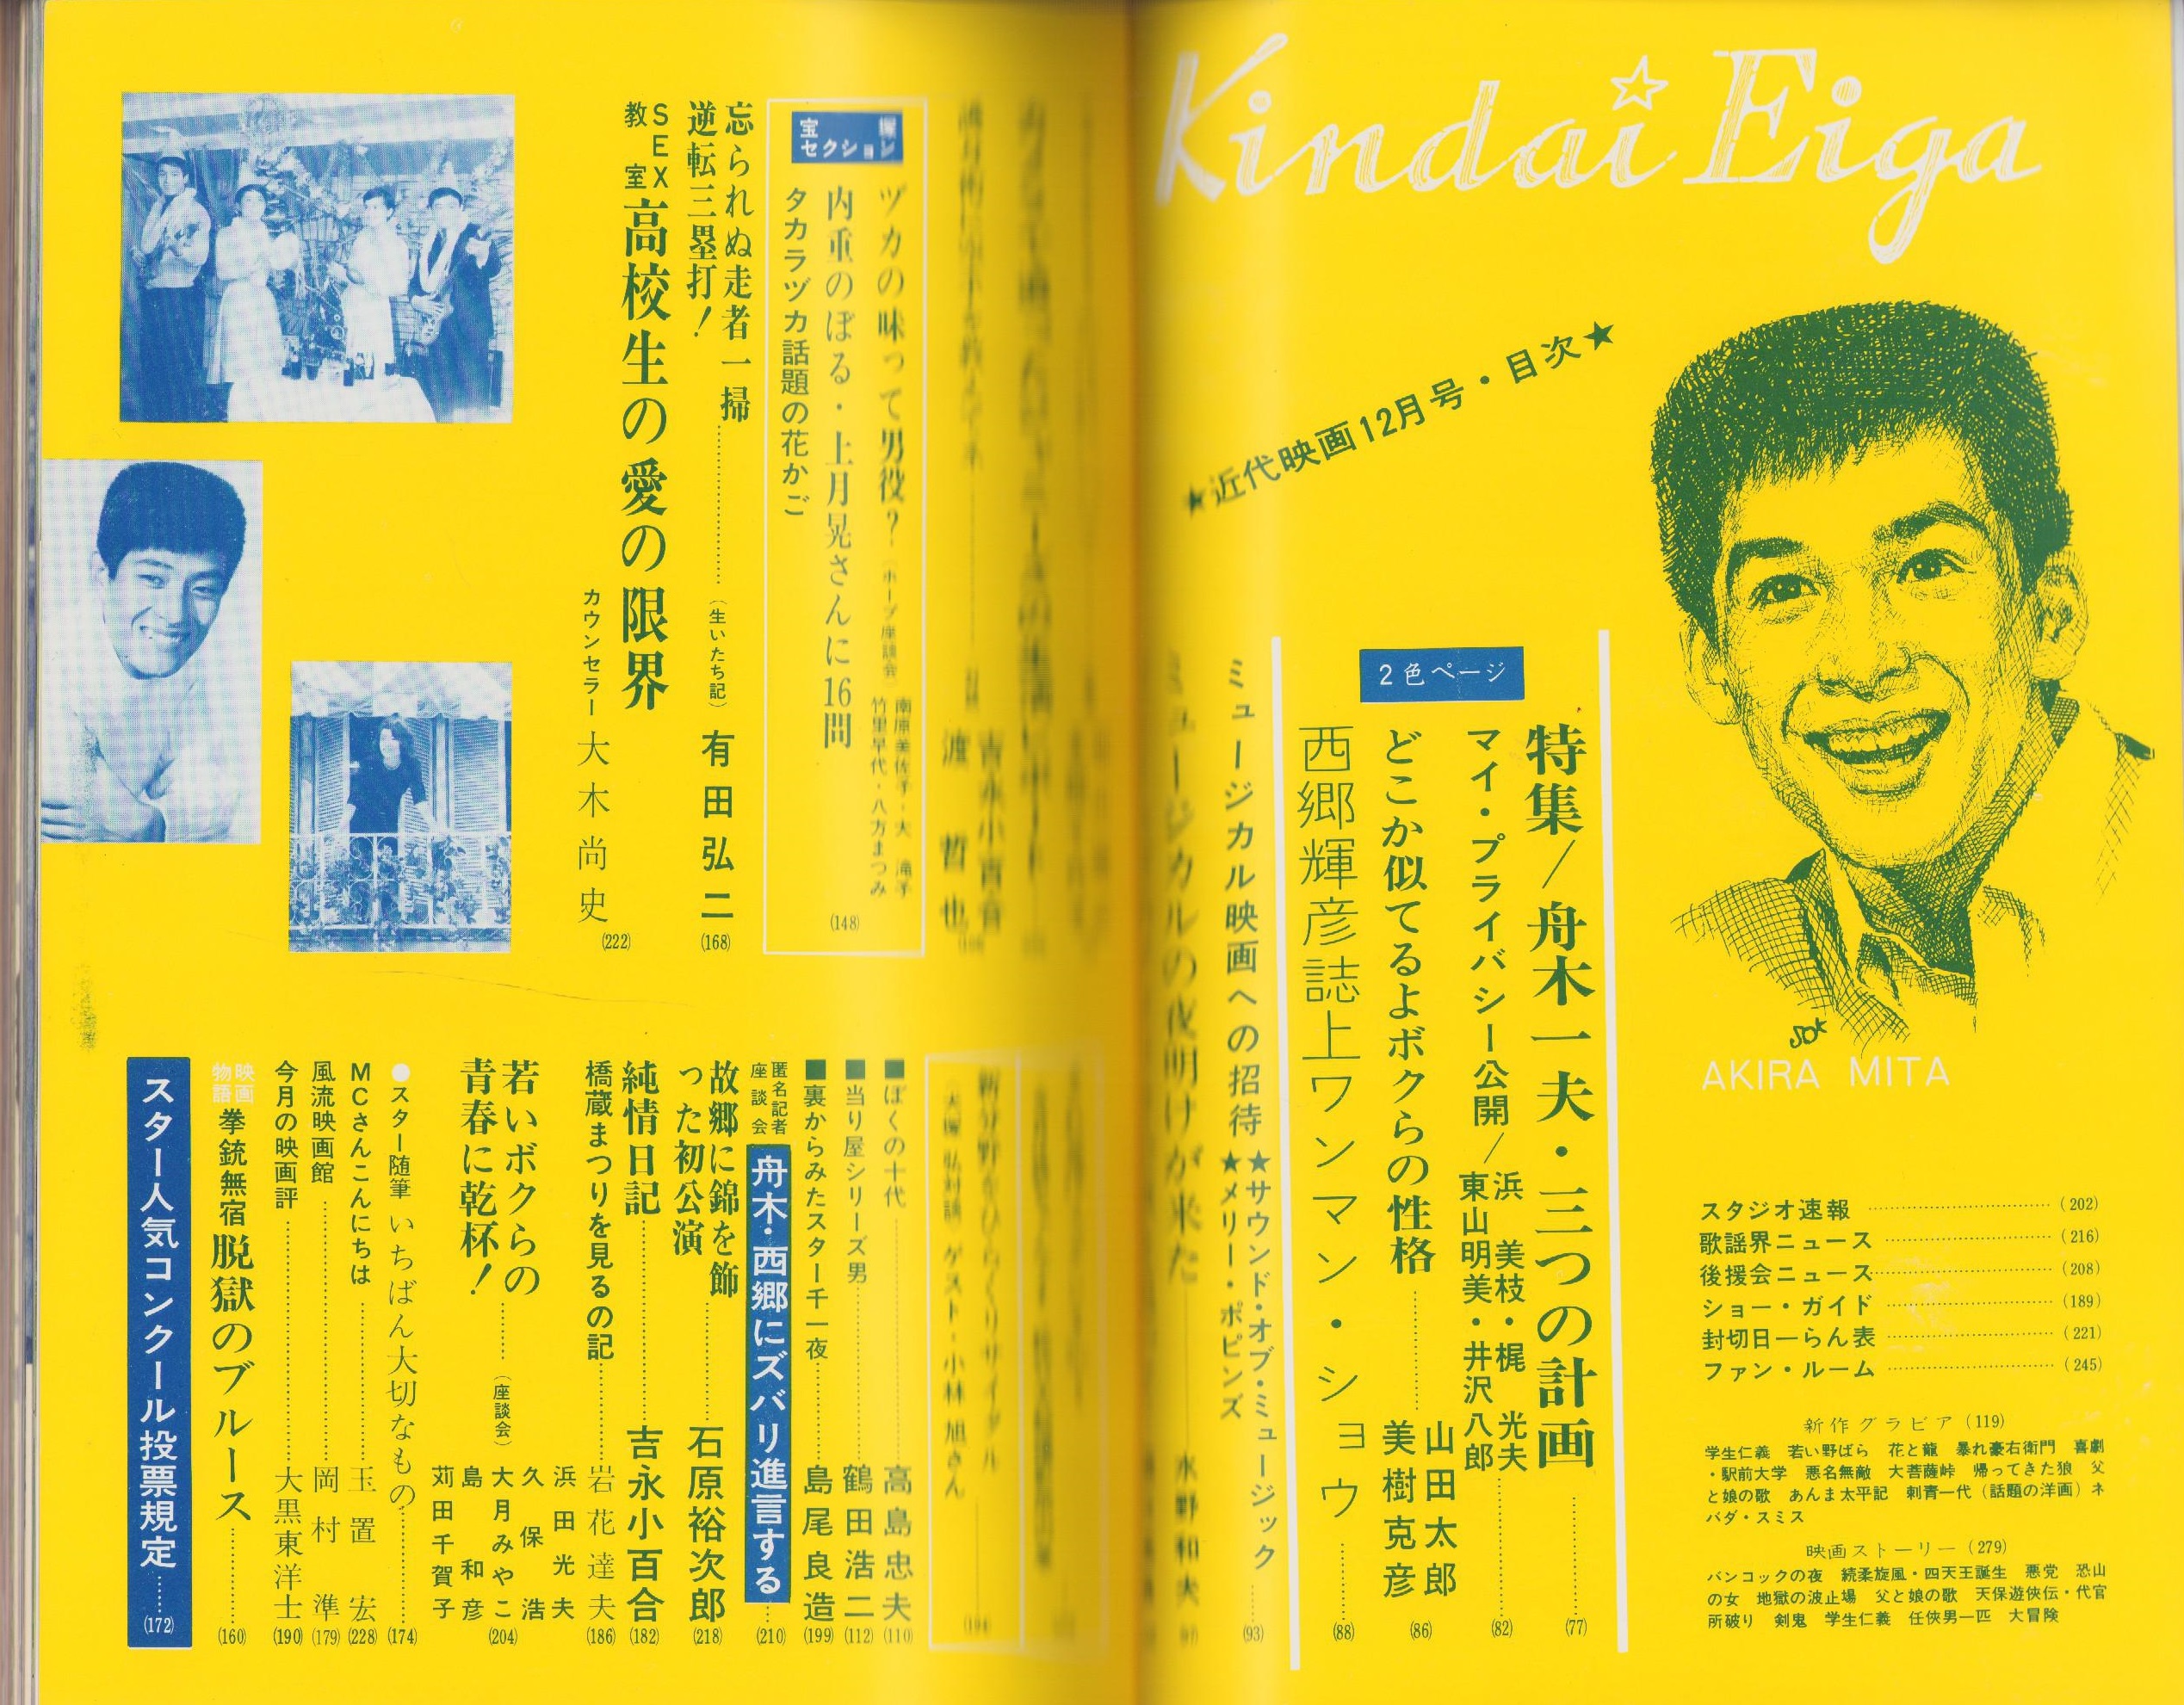 Kindai Eiga
★近代映画12月号・目次★
AKIRA MITA
2色ページ
特集/舟木一夫・三つの計画 (77)
マイ・プライバシー公開/浜美枝・梶光夫
東山明美・井沢八郎 (82)
どこか似てるよボクらの性格 山田太郎
美樹克彦 (86)
西郷輝彦誌上ワンマン・ショウ (88)
ミュージカル映画への招待 ★サウンド・オブ・ミュージック
★メリー・ポピンズ (93)
ミュージカルの夜明けが来た 水野和夫
スタジオ速報 (202)
歌謡界ニュース (216)
後援会ニュース (208)
ショー・ガイド (189)
封切日一らん表 (221)
ファン・ルーム (245)
新作グラビア(119)
学生仁義 若い野ばら 花と龍 暴れ豪右衛門 喜劇
・駅前大学 悪名無敵 大菩薩峠 帰ってきた狼 父
と娘の歌 あんま太平記 刺青一代(話題の洋画)ネ
バダ・スミス
映画ストーリー(279)
バンコックの夜 続柔旋風・四天王誕生 悪党 恐山
の女 地獄の波止場 父と娘の歌 天保遊侠伝・代官
所破り 剣鬼 学生仁義 任侠男一匹 大冒険
渡哲也
宝塚
セクション
ヅカの味って男役?(ホープ座談会)南原美佐子・大滝子
竹里早代・八方まつみ
内重のぼる・上月晃さんに16問
タカラヅカ話題の花かご
(148)
忘られぬ走者一掃
逆転三塁打! (生いたち記) 有田弘二 (168)
SEX
教室
高校生の愛の限界
カウンセラー 大木尚史 (222)
新分野をひらくリサイタル
ゲスト・小林旭さん
■ぼくの十代 高島忠夫 (110)
■当り屋シリーズ男 鶴田浩二 (112)
■裏からみたスター千一夜 島尾良造 (199)
匿名記者
座談会
舟木・西郷にズバリ進言する (210)
故郷に錦を飾
った初公演 石原裕次郎 (218)
純情日記 吉永小百合 (182)
橋蔵まつりを見るの記 岩花達夫 (186)
若いボクらの
青春に乾杯! (座談会) 浜田光夫
久保浩
大月みやこ
島和彦
苅田千賀子 (204)
●スター随筆 いちばん大切なもの (174)
MCさんこんにちは 玉置宏 (228)
風流映画館 岡村準 (179)
今月の映画評 大黒東洋士 (190)
映画
物語
拳銃無宿 脱獄のブルース (160)
スター人気コンクール投票規定 (172)